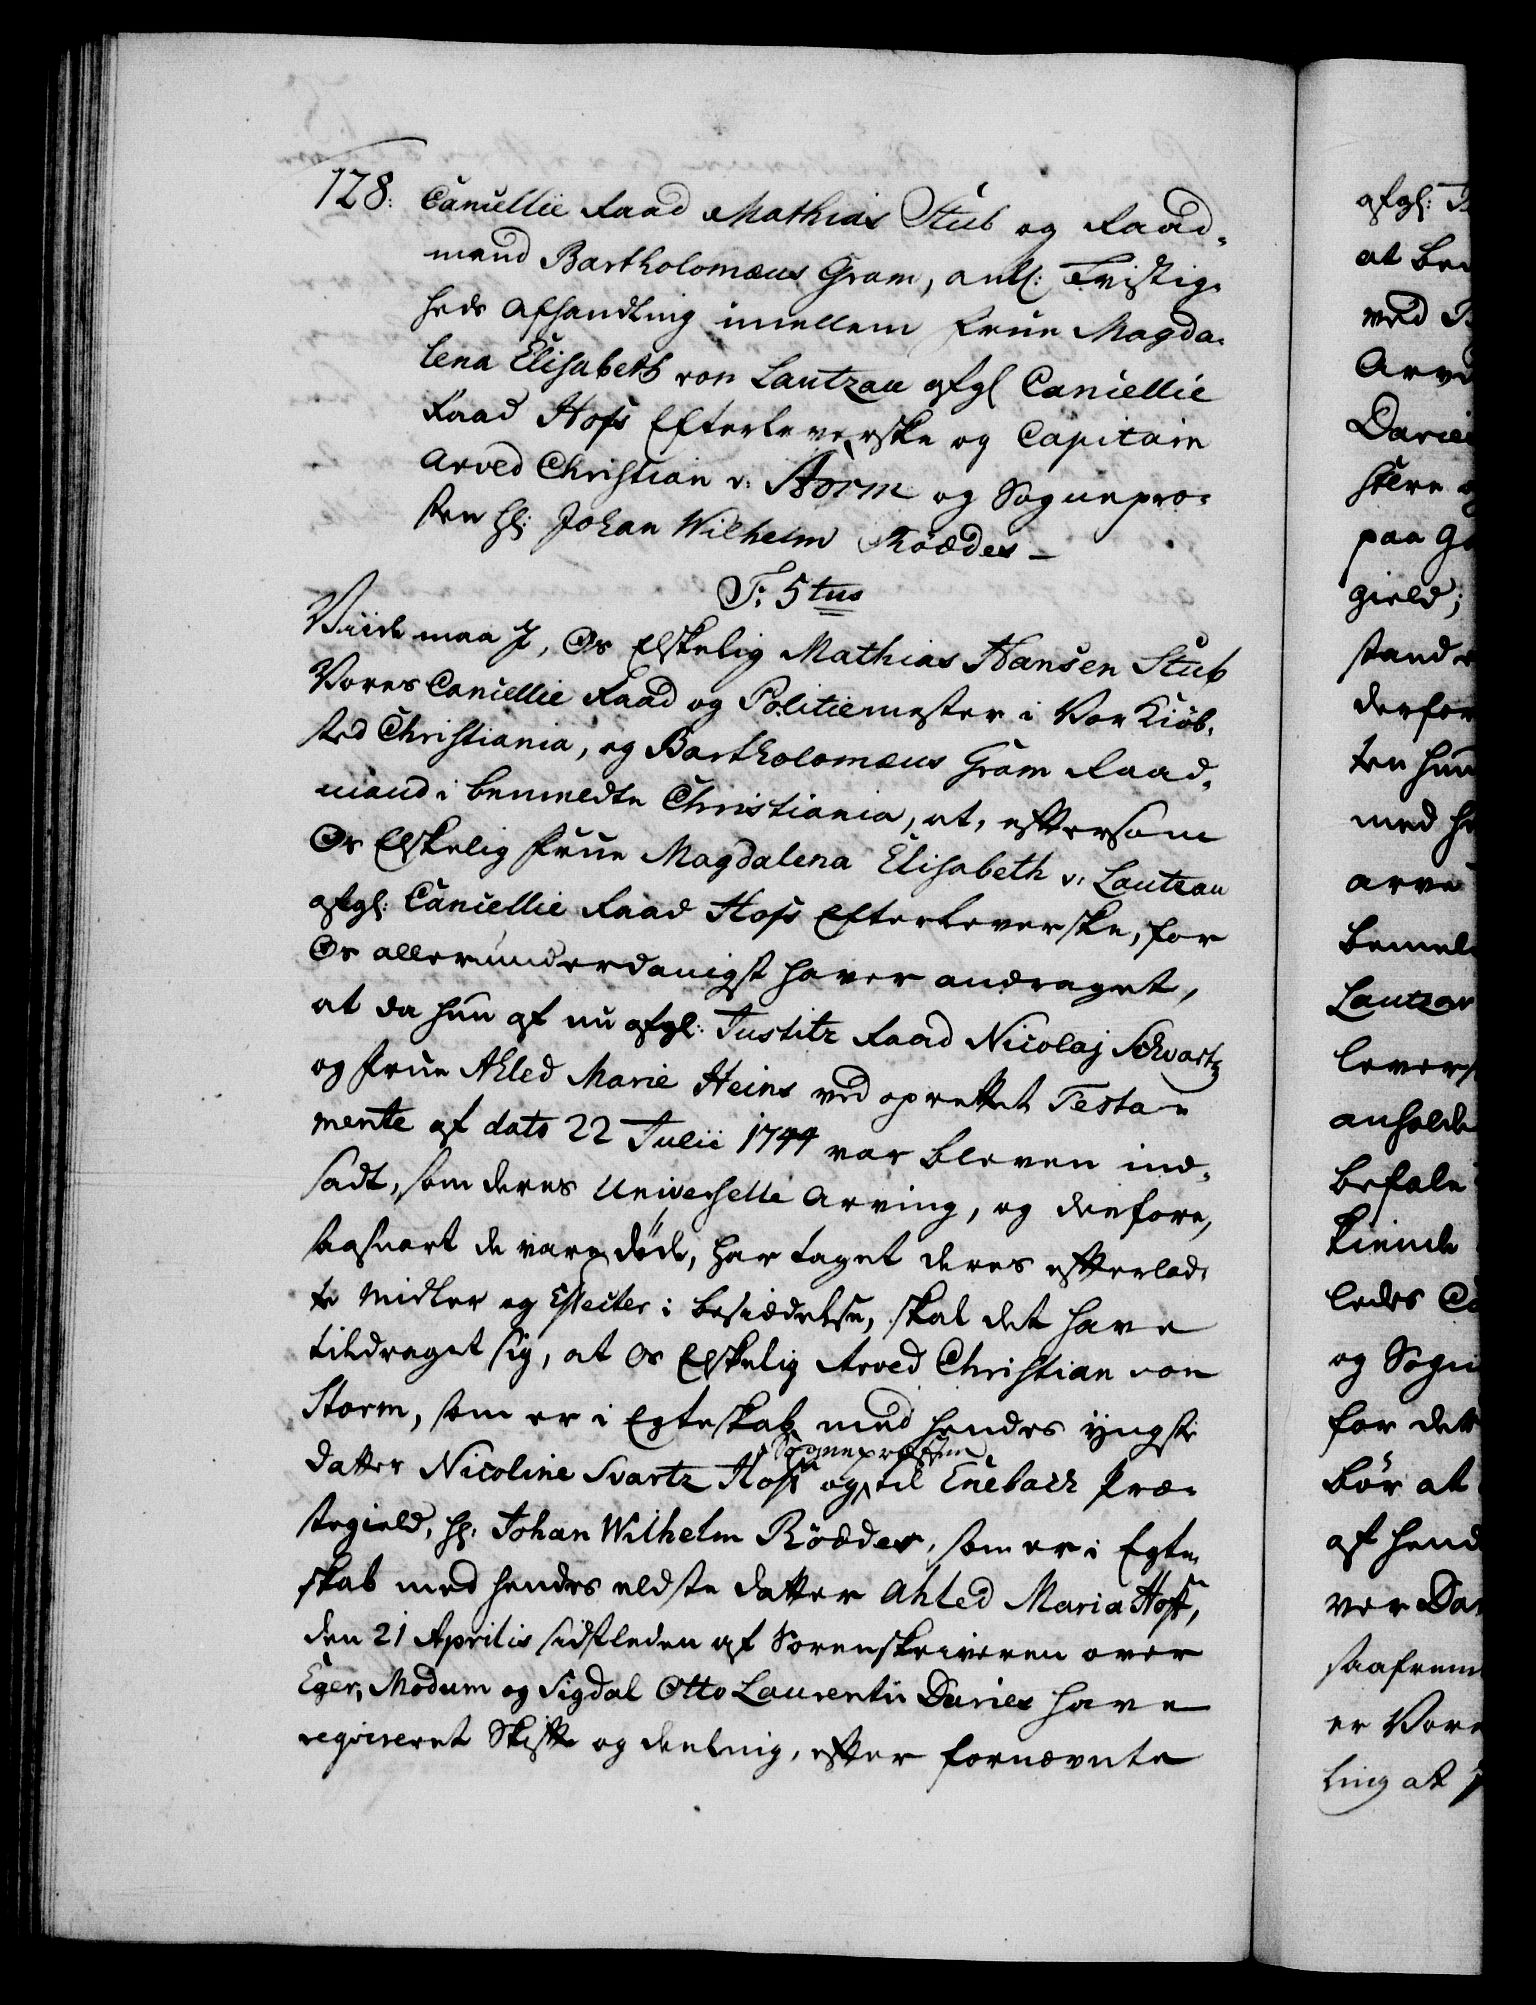 128. Cancellie Raad Mathias Stub og Raad-
mand Bartholomæus Gram, anl: Tvistig-
heds Afhandling imellem Frue Magda-
lena Elisabeth von Lautzau afgl Cancellie
Raad Hofs Efterleverske og Capitain
Arved Christian v: Storm og Sognepræ-
sten Hr: Johan Wilhelm Röæder –
F: 5tus
Viide maa I, Os Elskelig Mathias Hansen Stub
Vores Cancellie Raad og Politiemester i Vor Kiöb-
sted Christiania, og Bartholomæus Gram Raad-
mand i bemeldte Christiania, at, eftersom
Os Elskelig Frue Magdalena Elisabeth v: Lautzau
afgl: Cancellie Raad Hofs Efterleverske, for
Os allerunderdanigst haver andraget,
at da hun af nu afgl: Justitz Raad Nicolaj Schvartz
og Frue Ahled Marie Heins ved oprettet Testa-
mente af dato 22 Julii 1744 var bleven ind-
sadt, som deres Universelle Arving, og derfore,
saasnart de vare döde, har taget deres efterlad-
te Midler og Effecter i besiædelse, skal det have
tildraget sig, at Os Elskelig Arved Christian von
Storm, som er i Egteskab med hendes yngste
Datter Nicoline Svartz Hofs og Sognepræsten til Enebach Præ-
stegield, Hr: Johan Wilhelm Röæder, som er i Egte-
skab med hendes eldste Datter Ahled Maria Hofs,
den 21 Aprilis sidstleden af Sorenskriveren over
Eger, Modum og Sigdal Otto Laurentii Daries have
reqvireret Skifte og deeling, efter fornævnte